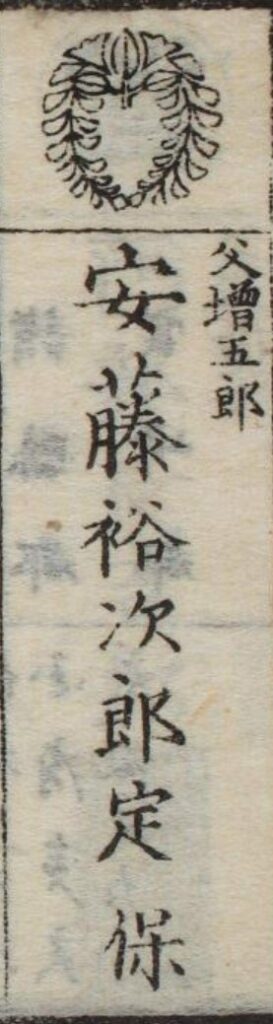 父増五郎
安藤裕次郎定保